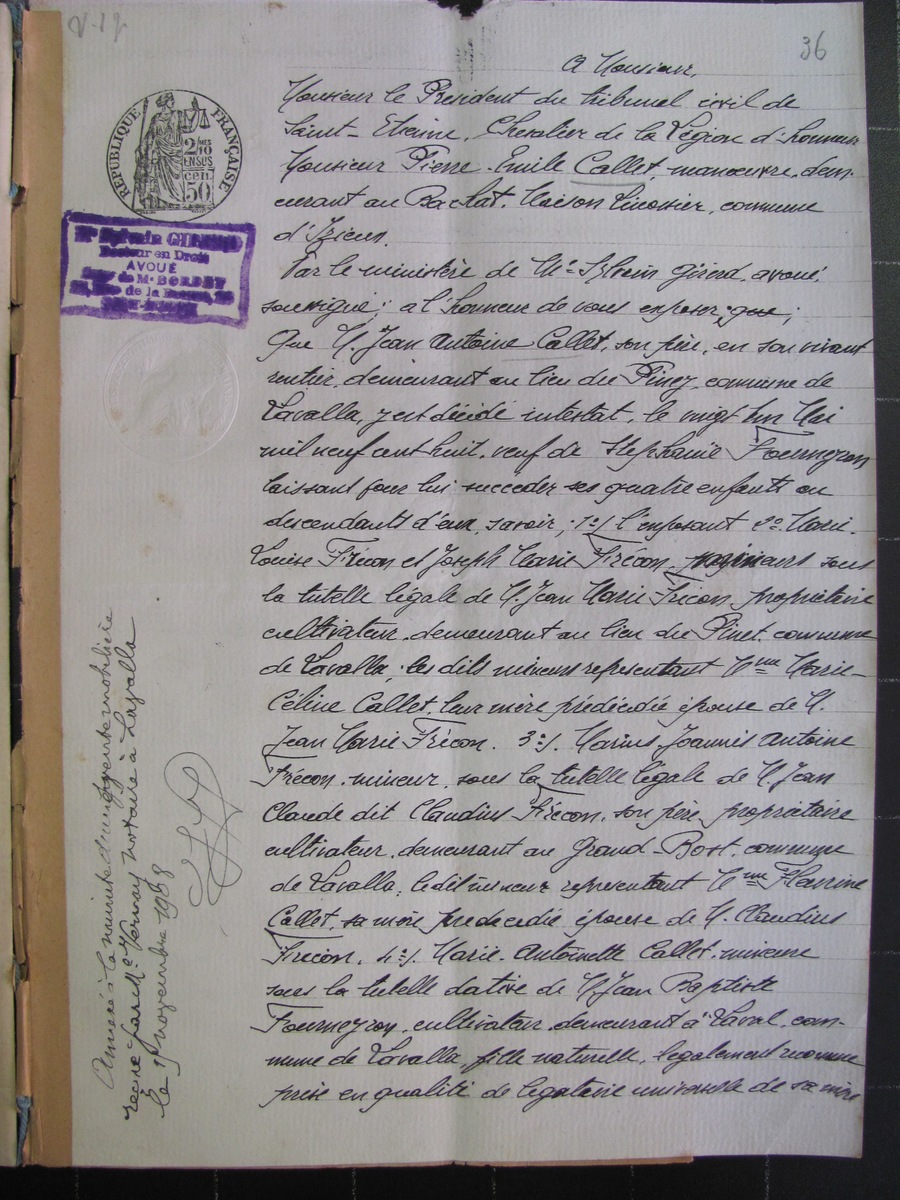 36
A Monsieur,
Monsieur le Président du tribunal civil de
Saint-Etienne, Chevalier de la Légion d'honneur
Monsieur Pierre-Emile Callet, manœuvre, dem-
eurant au Bachat, Maison Linossier, commune
d'Izieux.
RÉPUBLIQUE FRANÇAISE
2/10 MES
EN SUS
50 cen.
Me Sylvain GIRAUD
Docteur en Droit
AVOUÉ
de Me BORDET
de la
Par le ministère de Me Sylvain Giraud, avoué,
soussigné; a l'honneur de vous exposer; que;
Que M. Jean Antoine Callet, son père, en son vivant
rentier, demeurant au lieu du Piney, commune de
Lavalla, y est décédé intestat, le vingt un Mai
mil neuf cent huit, veuf de Stéphanie Fourneyron
laissant pour lui succéder ses quatre enfants ou
descendants d'eux, savoir; 1°/ l'exposant 2°. Marie-
Louise Frécon et Joseph Marie Frécon, mineurs sous
la tutelle légale de M. Jean Marie Frécon, propriétaire
cultivateur, demeurant au lieu du Pinet, commune
de Lavalla, les dits mineurs représentant Mme Marie-
Céline Callet, leur mère prédécédée épouse de M.
Jean Marie Frécon. 3°/. Marius Joannès Antoine
Frécon, mineur, sous la tutelle légale de M. Jean
Claude dit Claudius Frécon, son père, propriétaire
cultivateur, demeurant au Grand-Bost, commune
de Lavalla; le dit mineur représentant Mme
Callet, sa mère prédécédée épouse de M. Claudius
Frécon. 4°/. Marie-Antoinette Callet, mineure
sous la tutelle dative de M. Jean Baptiste
Fourneyron, cultivateur, demeurant à Laval, com-
mune de Lavalla, fille naturelle, légalement reconnue
prise en qualité de légataire universelle de sa mère
Annexé à la minute d'une vente mobilière
reçue par Me Vernay notaire à Lavalla
le novembre 1908